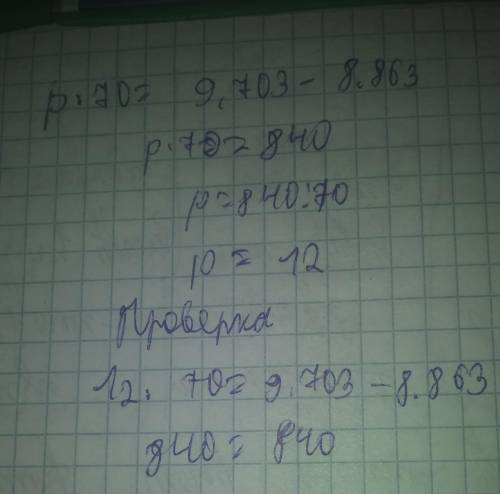 р·70= 9.703 - 8.863
р·70=840
р=840:70
р = 12
Проверка
12· 70= 9.703 - 8.863
840= 840